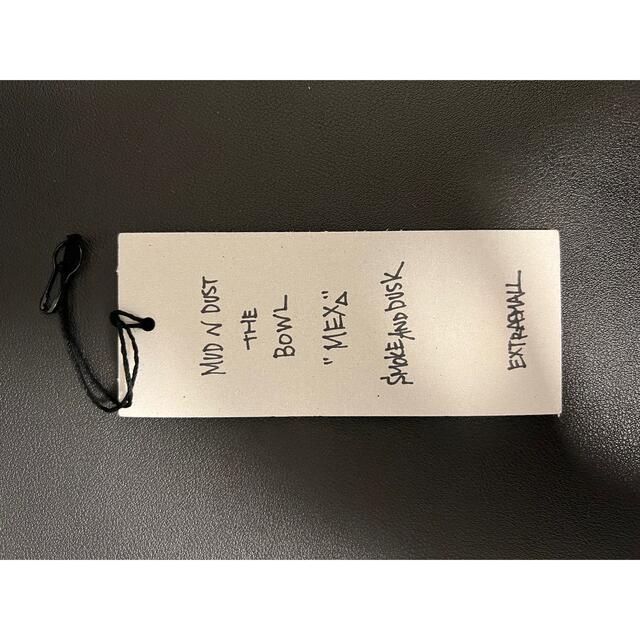 MUD N DUST
THE
BOWL
"MEX"
SMOKE AND DUSK